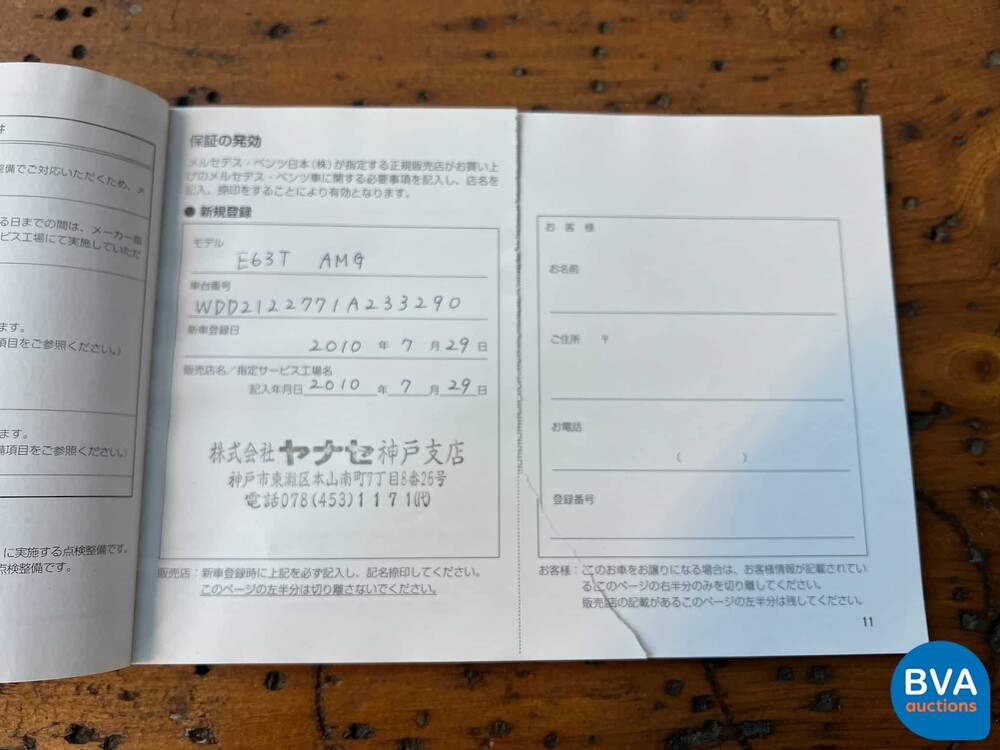 件
整備でご対応いただくため、メ
る日までの間は、メーカー指
ビス工場にて実施していただ
ます。
項目をご参照ください。)
ます。
備項目をご参照ください。)
に実施する点検整備です。
点検整備です。
保証の発効
メルセデス・ベンツ日本(株)が指定する正規販売店がお買い上
げのメルセデス・ベンツ車に関する必要事項を記入し、店名を
記入、捺印をすることにより有効となります。
● 新規登録
モデル
E63T AMG
車台番号
WDD2122771A233290
新車登録日
2010 年 7 月 29 日
販売店名/指定サービス工場名
記入年月日 2010 年 7 月 29 日
株式会社ヤナセ神戸支店
神戸市東灘区本山南町7丁目8番26号
電話078(453)1171㈹
販売店:新車登録時に上記を必ず記入し、記名捺印してください。
このページの左半分は切り離さないでください。
お客様
お名前
ご住所 〒
お電話
( )
登録番号
お客様:このお車をお譲りになる場合は、お客様情報が記載されてい
るこのページの右半分のみを切り離してください。
販売店の記載があるこのページの左半分は残してください。
11
BVA
auctions